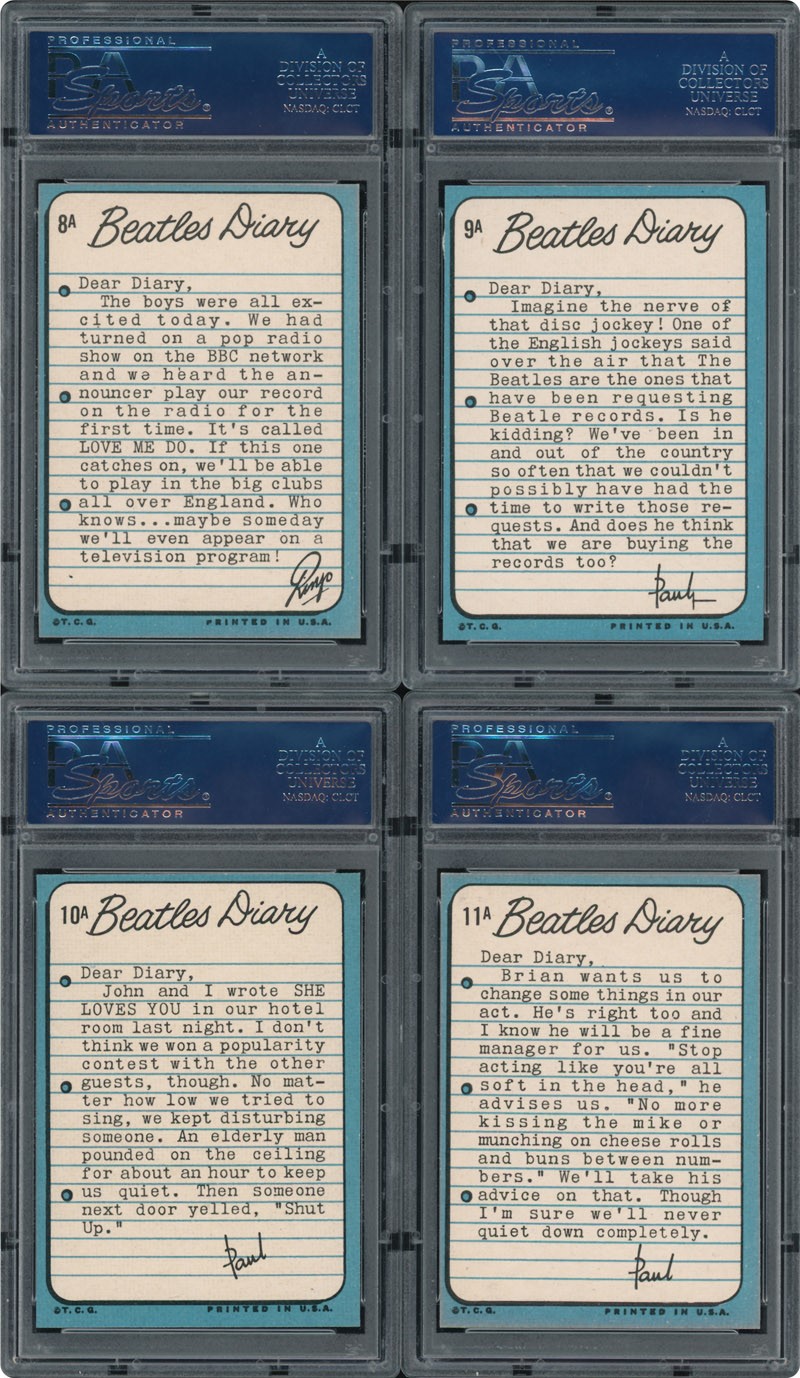 PROFESSIONAL
PSA
Sports®
AUTHENTICATOR
A
DIVISION OF
COLLECTORS
UNIVERSE
NASDAQ: CLCT
8A Beatles Diary
Dear Diary,
The boys were all ex-
cited today. We had
turned on a pop radio
show on the BBC network
and we heard the an-
nouncer play our record
on the radio for the
first time. It's called
LOVE ME DO. If this one
catches on, we'll be able
to play in the big clubs
all over England. Who
knows...maybe someday
we'll even appear on a
television program!
Ringo
©T.C.G. PRINTED IN U.S.A.
PROFESSIONAL
PSA
Sports®
AUTHENTICATOR
A
DIVISION OF
COLLECTORS
UNIVERSE
NASDAQ: CLCT
9A Beatles Diary
Dear Diary,
Imagine the nerve of
that disc jockey! One of
the English jockeys said
over the air that The
Beatles are the ones that
have been requesting
Beatle records. Is he
kidding? We've been in
and out of the country
so often that we couldn't
possibly have had the
time to write those re-
quests. And does he think
that we are buying the
records too?
Paul
©T.C.G. PRINTED IN U.S.A.
PROFESSIONAL
PSA
Sports®
AUTHENTICATOR
A
DIVISION OF
COLLECTORS
UNIVERSE
NASDAQ: CLCT
10A Beatles Diary
Dear Diary,
John and I wrote SHE
LOVES YOU in our hotel
room last night. I don't
think we won a popularity
contest with the other
guests, though. No mat-
ter how low we tried to
sing, we kept disturbing
someone. An elderly man
pounded on the ceiling
for about an hour to keep
us quiet. Then someone
next door yelled, "Shut
Up."
Paul
©T.C.G. PRINTED IN U.S.A.
PROFESSIONAL
PSA
Sports®
AUTHENTICATOR
A
DIVISION OF
COLLECTORS
UNIVERSE
NASDAQ: CLCT
11A Beatles Diary
Dear Diary,
Brian wants us to
change some things in our
act. He's right too and
I know he will be a fine
manager for us. "Stop
acting like you're all
soft in the head," he
advises us. "No more
kissing the mike or
munching on cheese rolls
and buns between num-
bers." We'll take his
advice on that. Though
I'm sure we'll never
quiet down completely.
Paul
©T.C.G. PRINTED IN U.S.A.